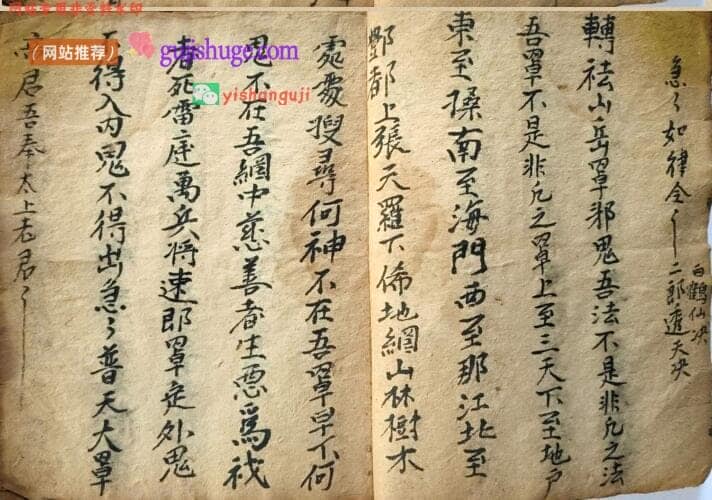 急々如律令
白鶴仙决
二郎遮天决
轉祛山岳罩邪鬼吾法不是非凡之法
吾罩不是非凡之罩上至三天下至地户
東至操南至海門西至那江北至
酆都上張天羅下佈地網山林樹木
處處搜尋何神不在吾罩早不何
鬼不在吾網中慈善者生惡爲祅
者死雷霆萬兵将速即罩定外鬼
不得入内鬼不得出急々普天大罩
君吾奉太上老君
(网站推荐)
gujishuge.com
yishanguji